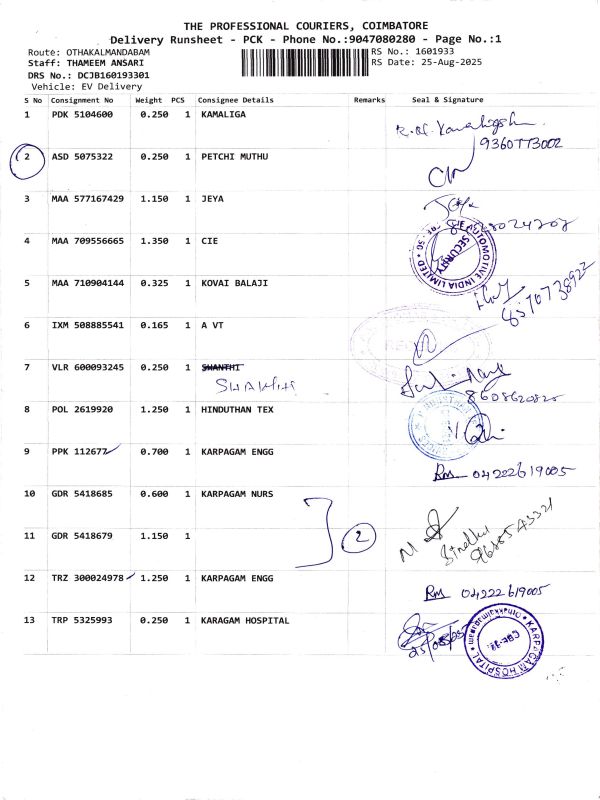 THE PROFESSIONAL COURIERS, COIMBATORE
Delivery Runsheet - PCK - Phone No.:9047080280 - Page No.:1
Route: OTHAKALMANDABAM
RS No.: 1601933
Staff: THAMEEM ANSARI
RS Date: 25-Aug-2025
DRS No.: DCJB160193301
Vehicle: EV Delivery
S No Consignment No Weight PCS Consignee Details Remarks Seal & Signature
1 PDK 5104600 0.250 1 KAMALIGA
9360773002
2 ASD 5075322 0.250 1 PETCHI MUTHU
3 MAA 577167429 1.150 1 JEYA
4 MAA 709556665 1.350 1 CIE
AUTOMOTIVE INDIA LIMITED
SECURITY
5 MAA 710904144 0.325 1 KOVAI BALAJI
8570738922
6 IXM 508885541 0.165 1 A VT
7 VLR 600093245 0.250 1 SHANTHI
8608620825
8 POL 2619920 1.250 1 HINDUTHAN TEX
9 PPK 112677 0.700 1 KARPAGAM ENGG
Rm 04222619005
10 GDR 5418685 0.600 1 KARPAGAM NURS
11 GDR 5418679 1.150 1
2
12 TRZ 300024978 1.250 1 KARPAGAM ENGG
Rm 04222619005
13 TRP 5325993 0.250 1 KARAGAM HOSPITAL
KARPAGAM HOSPITAL
CBE-32